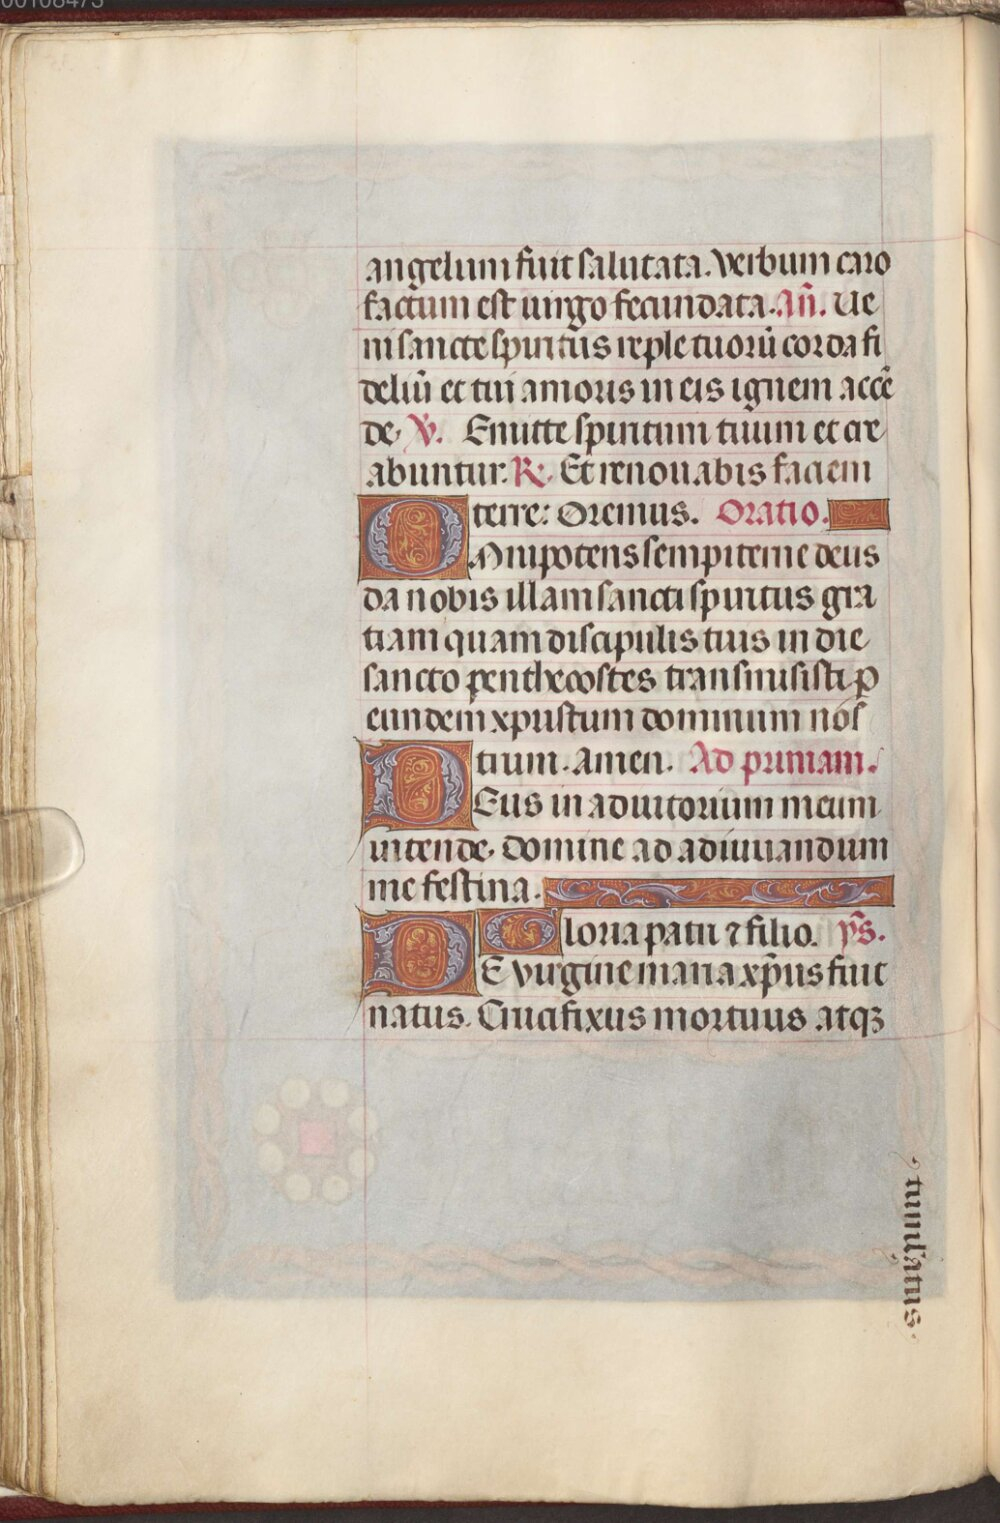 angelum fuit salutata. Verbum caro
factum est uirgo fecundata. Añ. Ue
ni sancte spiritus reple tuorū corda fi
deliū et tui amoris in eis ignem accē
de. V. Emitte spiritum tuum et cre
abuntur. R. Et renouabis faciem
terre: Oremus. Oratio.
OMnipotens sempiterne deus
da nobis illam sancti spiritus gra
tiam quam discipulis tuis in die
sancto penthecostes transmisisti p
eundem xpristum dominum nos
trum. Amen. Ad primam.
DEus in adiutorium meum
intende. Domine ad adiuuandum
me festina.
Gloria patri ⁊ filio. ps.
DE virgine maria xp̄us fuit
natus. Crucifixus mortuus atqꝫ
tumulatus.